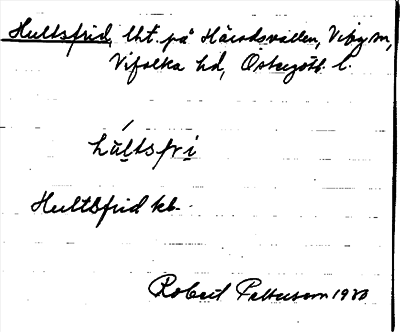 Hultsfrid, lht. på Häradsvallen, Viby sn,
Vifolka hd, Östergötl. l.
húltsfri
Hultsfrid kb.
Robert Pettersson